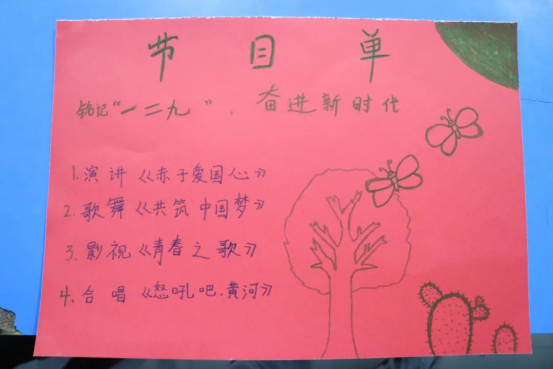 节目单
铭记“一二九”,奋进新时代
1.演讲《赤子爱国心》
2.歌舞《共筑中国梦》
3.影视《青春之歌》
4.合唱《怒吼吧.黄河》